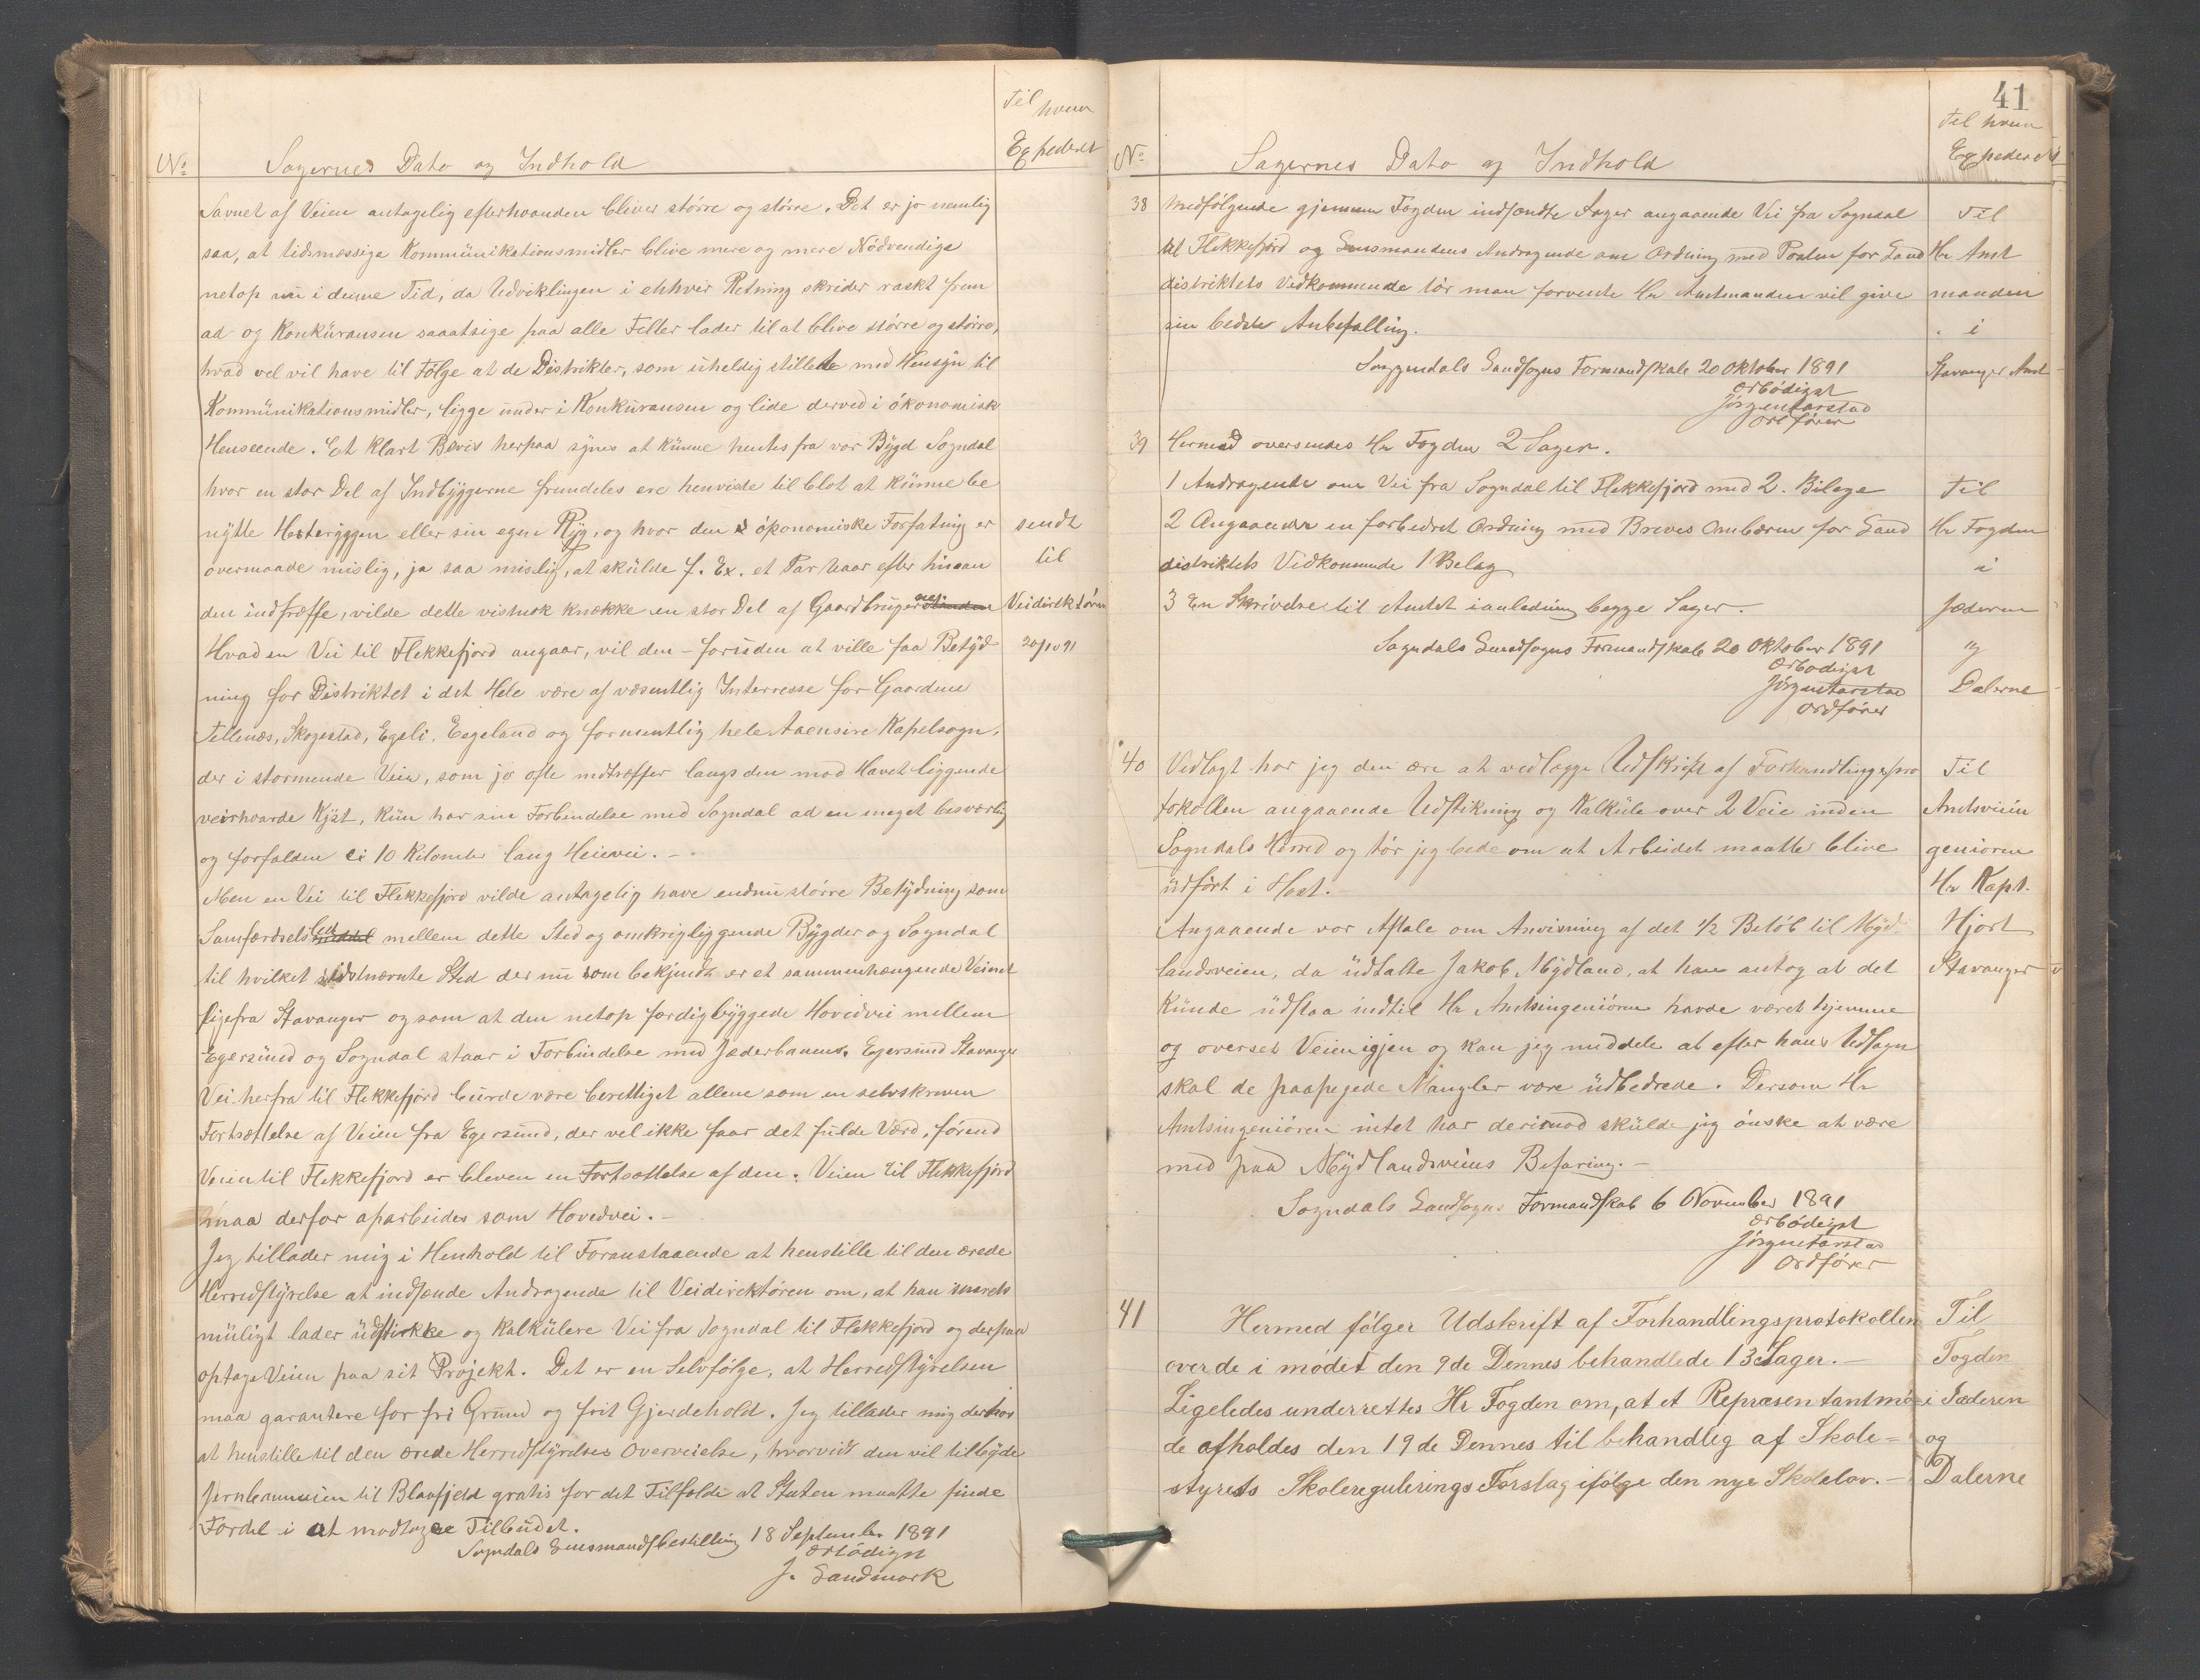 Til hvem
No Sagernes Dato og Indhold Expederet
Savnet af Veien antagelig efterhvanden bliver större og större. Det er jo nemlig
saa, at tidsmæssige Kommünikationsmidler blive mere og mere Nödvendige
netop nü i denne Tid, da Udviklingen i ehhver Retning skrider raskt frem
ad og Konküransen saaatsige paa alle Felter lader til at blive större og större,
hvad vel vil have til Fölge at de Distrikter, som üheldig stillede med Hensyn til
Kommünikationsmidler, ligge ünder i Konküransen og lide derved i ökonomisk
Henseende. Et klart Bevis herpaa synes at künne hentes fra vor Bygd Sogndal
hvor en stor Del af Indbyggerne fremdeles ere henviste til blot at künne be
nytte Hesteryggen eller sin egen Ryg, og hvor den ökonomiske Forfatning er
overmaade mislig, ja saa mislig, at skülde f. Ex. et Par Uaar efter hinan
den indtræffe, vilde dette vistnok knække en stor Del af Gaardbrügerne
Hvad en Vei til Flekkefjord angaar, vil den – foruden at ville faa Betyd
ning for Distriktet i det Hele være af væsentlig Interresse for Gaardene
Tellenæs, Skogestad, Egeli, Eegeland og formentlig hele Aaensire Kapelsogn,
der i stormende Veir, som jo ofte indtræffer langs den mod Havet liggende
veirhaarde Kyst, kün har sin Forbindelse med Sogndal ad en meget besværlig
og forfalden ci 10 Kilometer lang Heievei. –
Men en Vei til Flekkefjord vilde antagelig have endnü större Betydning som
Samfærdselsled mellem dette Sted og omkrigliggende Bygder og Sogndal
til hvilket sidstnævnte Sted der nü som bekjendt er et sammenhængende Veinet
ligefra Stavanger og som at den netop færdigbyggede Hovedvei mellem
Egersünd og Sogndal staar i Forbindelse med Jæderbanens Egersund Stavanger
Vei herfra til Flekkefjord bürde være berettiget allene som en selvskreven
Fortsættelse af Veien fra Egersünd, der vel ikke faar det fülde Værd, förend
Veien til Flekkefjord er bleven en Fortsættelse af den. Veien til Flekkefjord
maa derfor oparbeides som Hovedvei. –
Jeg tillader mig i Henhold til Foranstaaende at henstille til den ærede
Herredstyrelse at indsende Andragende til Veidirektören om, at han snarets
müligt lader üdstikke og kalkülere Vei fra Sogndal til Flekkefjord og derpaa
optage Veien paa sit Projekt. Det er en Selvfölge, at Herredstyrelsen
maa garantere for fri Gründ og frit Gjerdehold. Jeg tillader mig derhos
at henstille til den ærede Herredstyrelses Overveielse, hvorvidt den vil tilbyde
til Blaafjeld gratis for det Tilfælde at Staten maatte finde
Fordel i at modtage Tilbüdet.
Sogndals Lensmandsbestilling 18 September 1891
ærbödigst
J. Sandmark
sendt
til
Veidirektören
20/10 91
41
Til hvem
No Sagernes Dato og Indhold Expederet
38 Medfölgende gjennem Fogden indsendte Sager angaaende Vei fra Sogndal Til
til Flekkefjord og Lensmandens Andragende om Ordning med Posten for Land Hr Amt
distriktets Vedkommende tör man forvente Hr Amtmanden vil give manden
sin bedste Anbefalling. i
Soggendals Landsogns Formandskab 20 Oktober 1891 Stavanger Amt
ærbödigst
Jörgen Tarstad
Ordförer
39 Hermed oversendes Hr Fogden 2 Sager.
1 Andragende om Vei fra Sogndal til Flekkefjord med 2. Bilage Til
2 Angaaende en forbedret Ordning med Breves Ombæren for Land Hr Fogden
distriktets Vedkommende 1 Belag i
3 En Skrivelse til Amtet ianledning begge Sager. – Jæderen
Sogndals Landsogns Formandskab 20 Oktober 1891 og
ærbødigst
Jörgen Tarstad Dalerne
Ordförer
40 Vedlagt har jeg den ære at vedlægge Udskrift af Forhandlingspro Til
tokollen angaaende Udstikning og Kalküle over 2 Veie inden Amtsveiin
Sogndals Herred og tör jeg bede om at Arbeidet maatte blive geniören
üdfört i Höst. – Hr Kapt.
Angaaende vor Aftale om Anvisning af det 1/2 Belöb til Myd Hjort
landsveien, da üdtalte Jakob Mydland, at han antog at det Stavanger
künde üdstaa indtil Hr Amtsingeniören havde været hjemme
og overset Veien igjen og kan jeg meddele at efter hans Udsagn
skal de paapegede Mangler være üdbedrede. Dersom Hr
Amtsingeniören intet har derimod skülde jeg önske at være
med paa Mydlandsveiens Befaring. –
Sogndals Landsogns Formandskab 6 November 1891
ærbödigst
Jörgen Tarstad
Ordförer
41 Hermed fölger Udskrift af Forhandlingsprotokollen Til
over de i mödet den 9de Dennes behandlede 13 Sager. – Fogden
Ligeledes underrettes Hr Fogden om, at et Repræsentantmö- i Jæderen
de afholdes den 19de Dennes til behandlig af Skole- og
styrets Skoleregulerings Forslag ifölge den nye Skolelov. – Dalerne